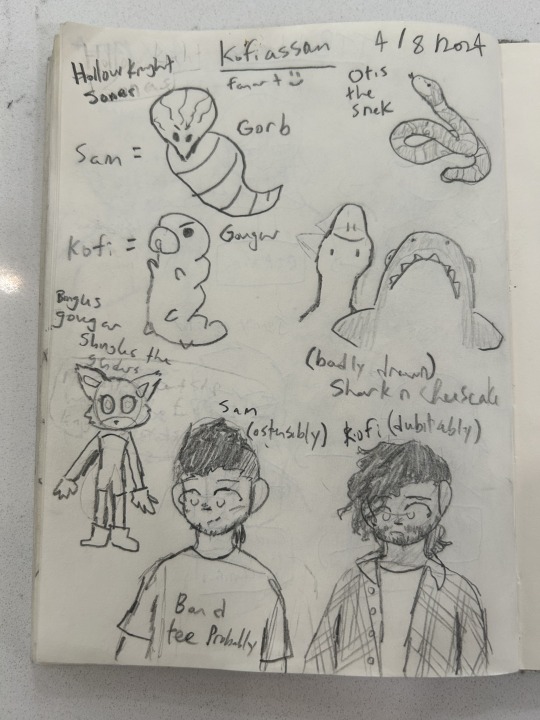 Hollow Knight
Kofiassan
4/8/2024
fanart
Otis
the
snek
Gorb
Sam =
Kofi =
Gougar
gougar
the
(badly drawn)
Shark n cheescake
Sam
(ostensibly)
Kofi (dubitably)
Band
tee Probably